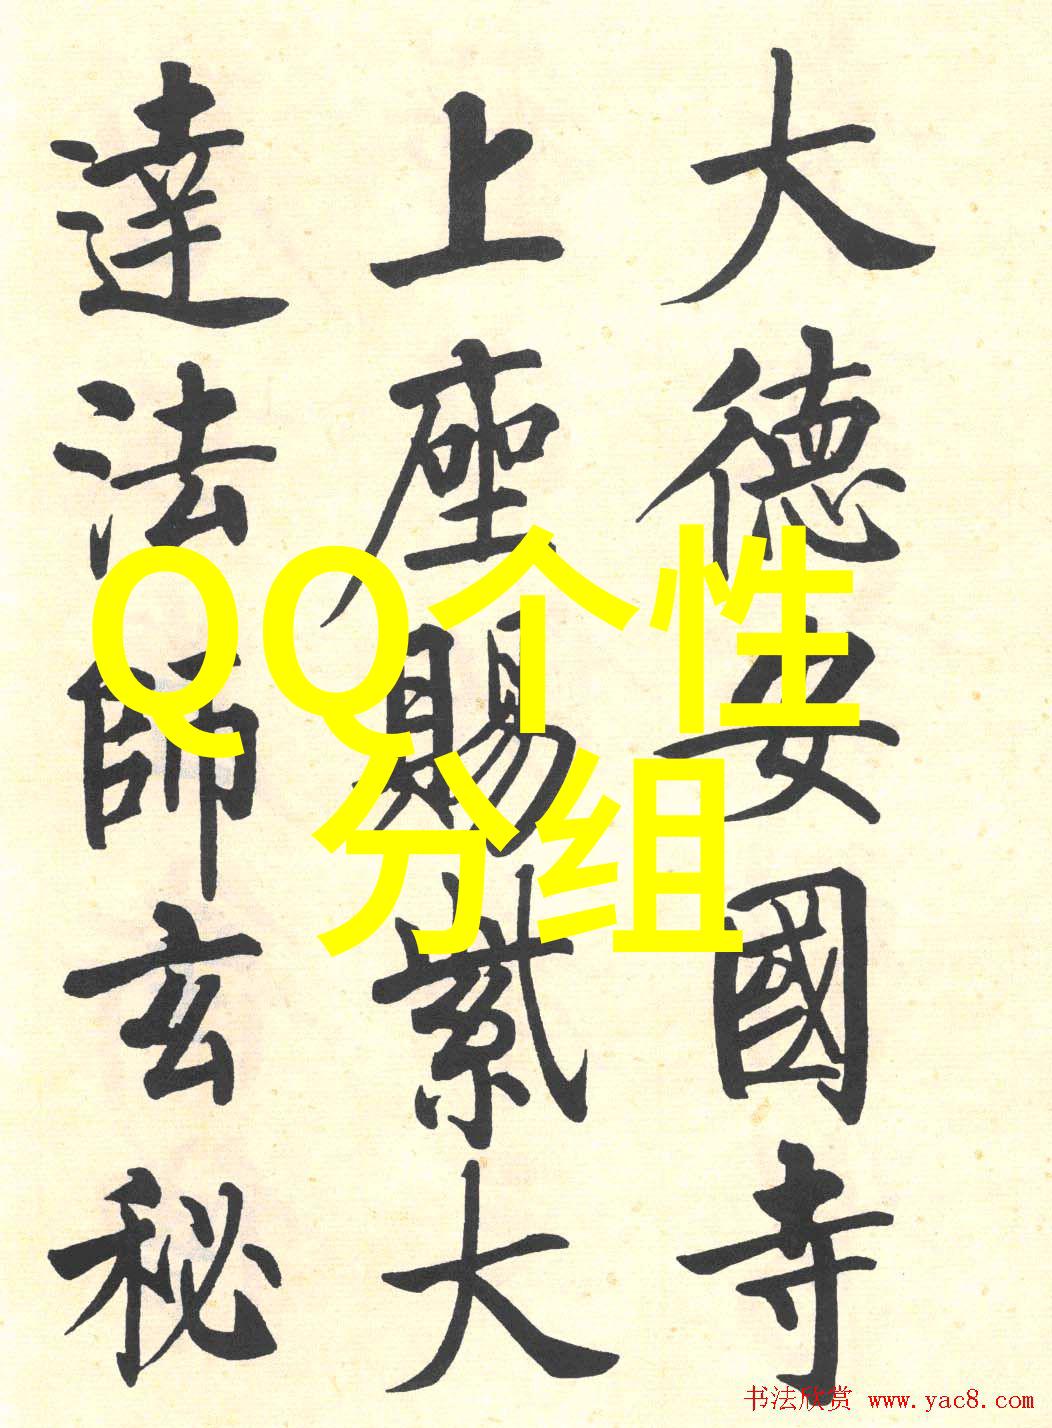 大德安國寺
上座賜紫大
達法師玄秘
QQ个性
分组
书法欣赏 www.yac8.com